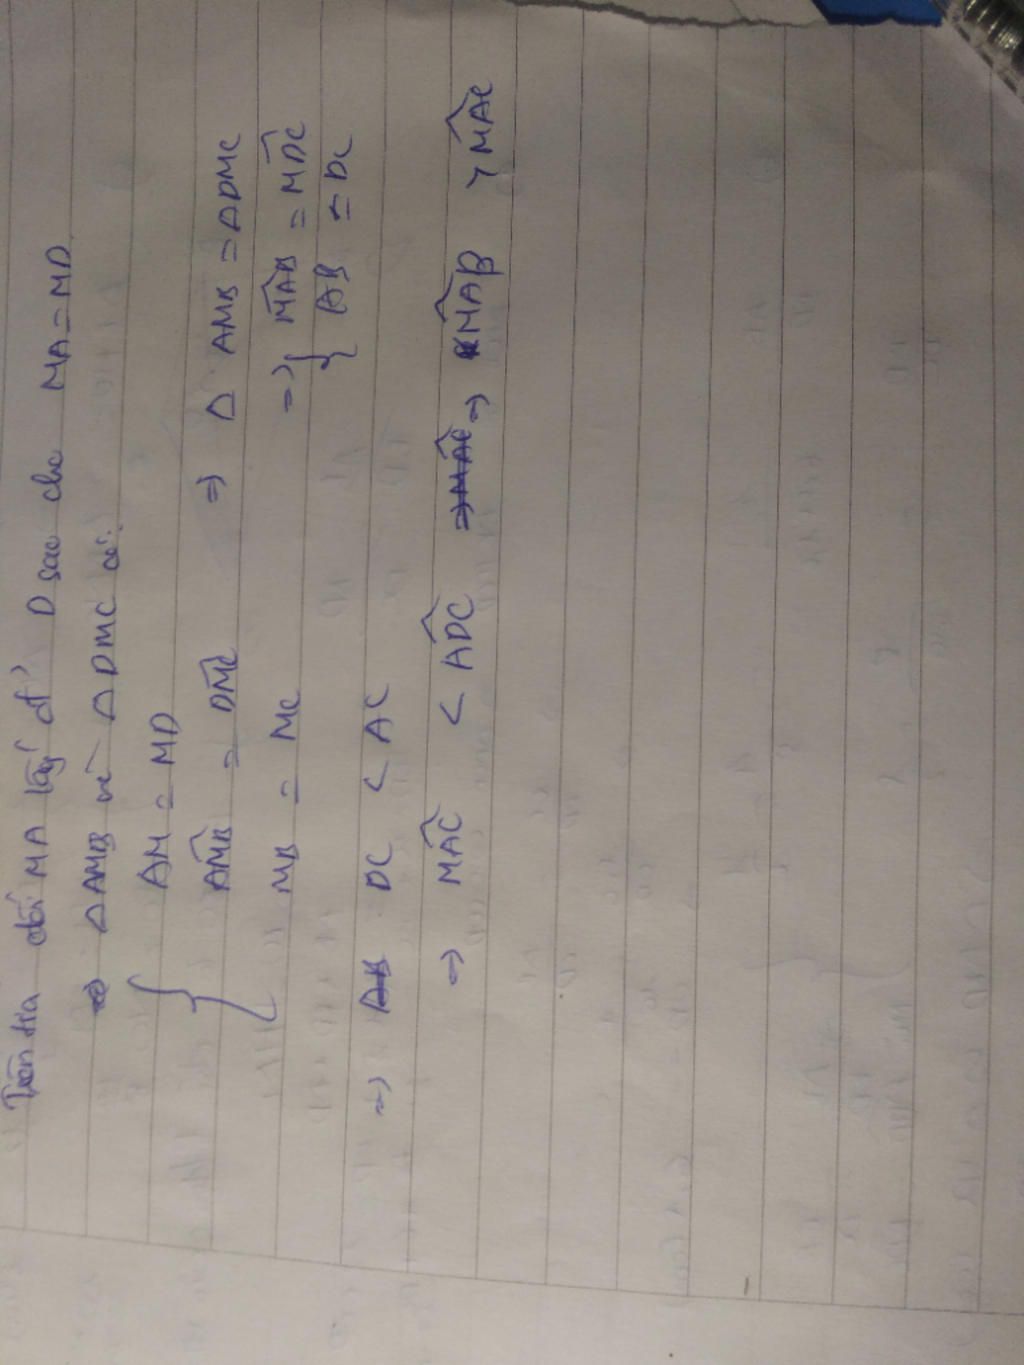 Trên tia đối MA lấy đ' D sao cho MA = MD
=> ΔAMB và ΔDMC có:
{ AM = MD
AMB^ = DMC^ => Δ AMB = ΔDMC
MB = MC => { MAB^ = MDC^
AB = DC
=> DC < AC
=> MAC^ < ADC^ => MAB^ > MAC^